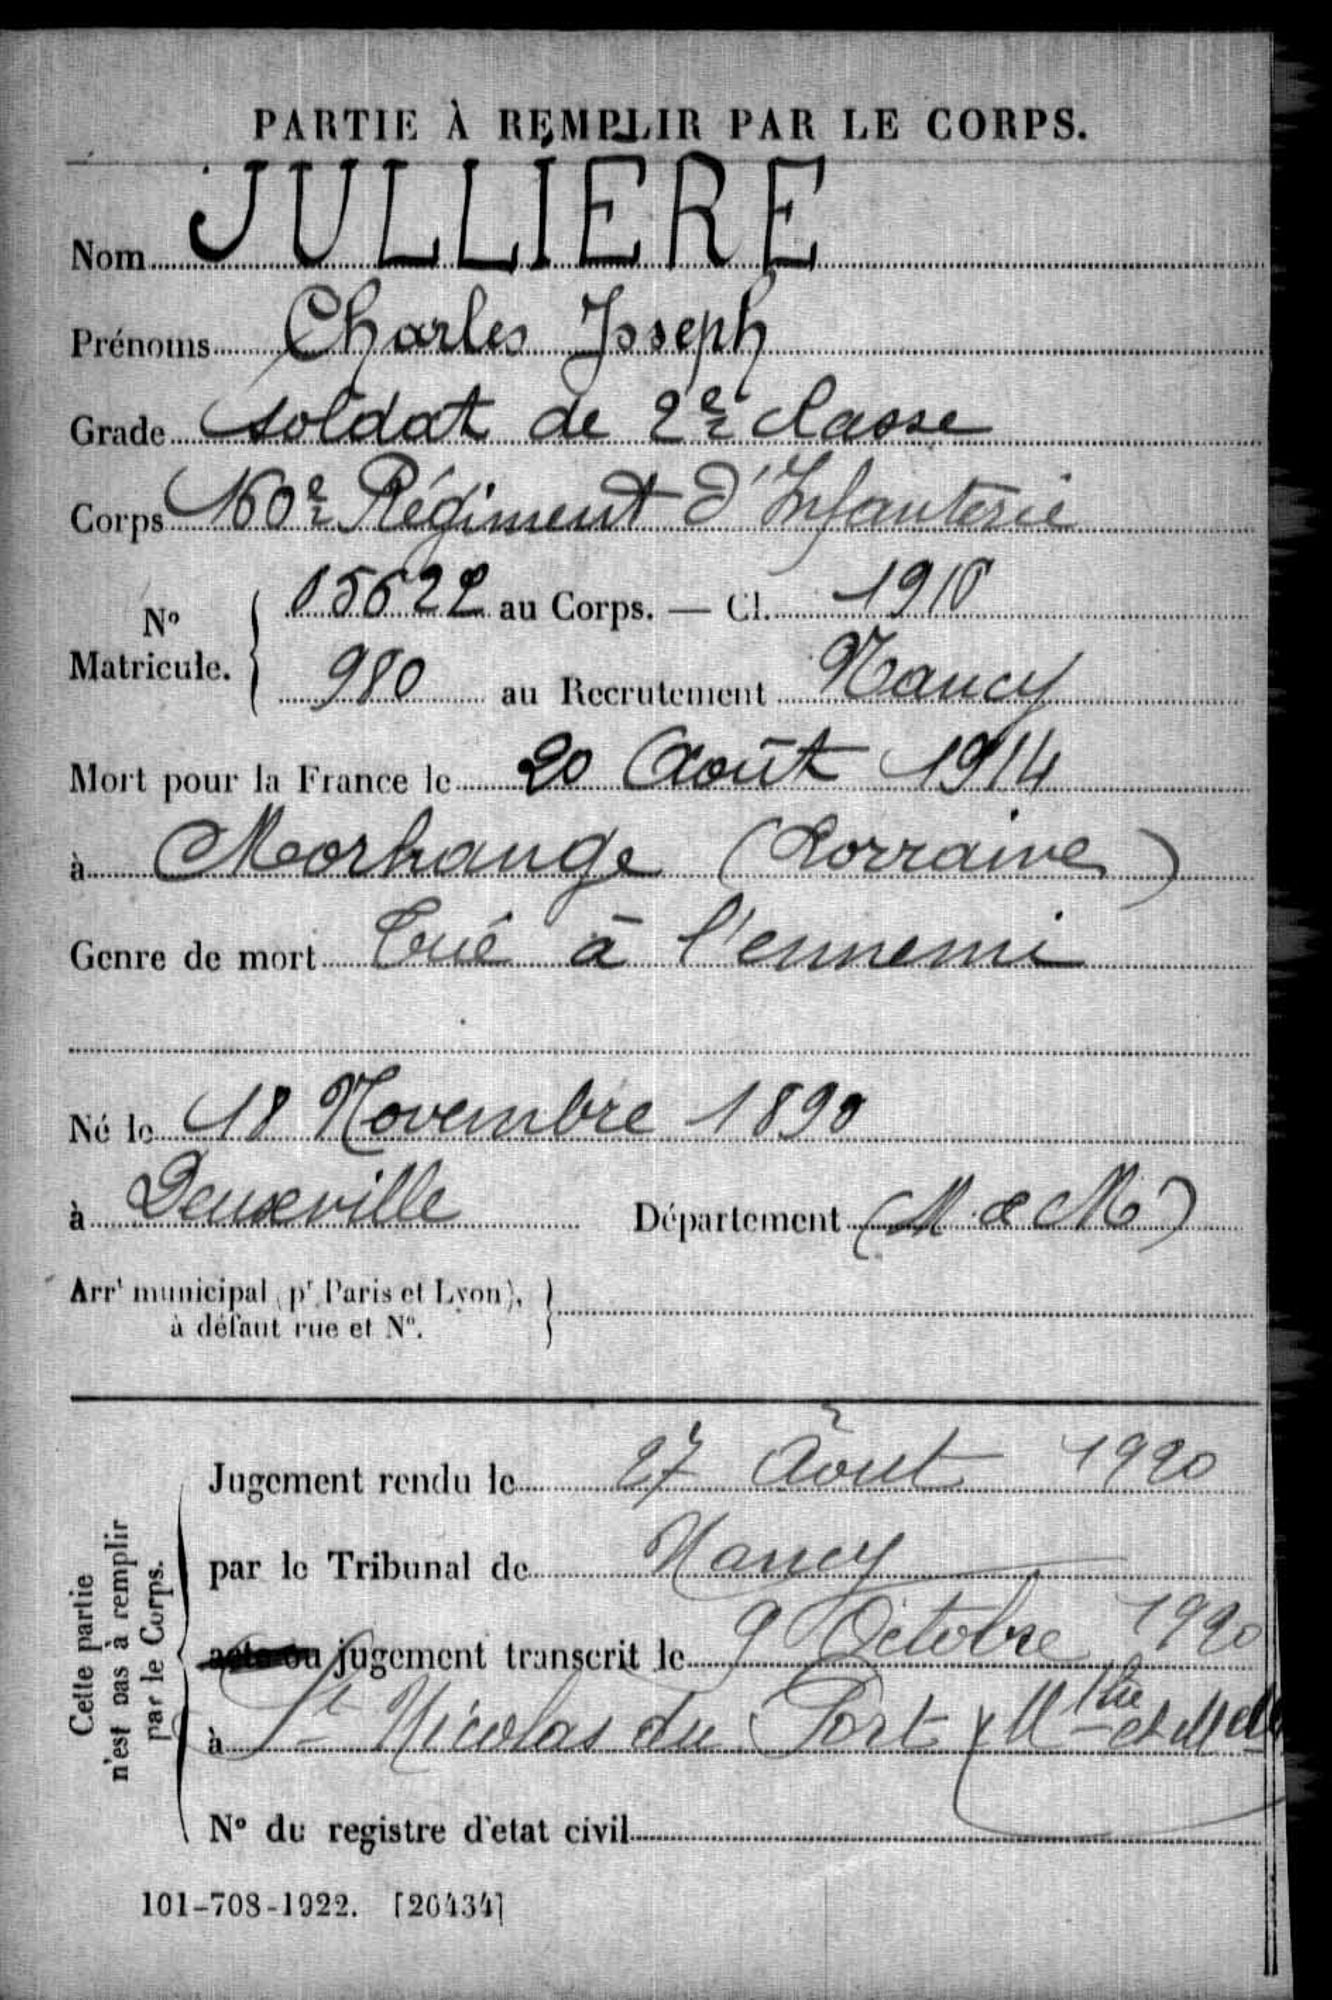 PARTIE À REMPLIR PAR LE CORPS.
Nom JULLIERE
Prénoms Charles Joseph
Grade soldat de 2e classe
Corps 160e Régiment d'Infanterie
No Matricule. 05622 au Corps. — Cl. 1910
980 au Recrutement Nancy
Mort pour la France le 20 Août 1914
à Morhange (Lorraine)
Genre de mort Tué à l'ennemi
Né le 18 Novembre 1890
à Deuxville Département (M & M)
Arrt municipal (pr Paris et Lyon),
à défaut rue et No.
Cette partie
n'est pas à remplir
par le Corps.
Jugement rendu le 27 Août 1920
par le Tribunal de Nancy
acte ou jugement transcrit le 9 Octobre 1920
à St Nicolas du Port (Mthe et Melle
No du registre d'etat civil
101-708-1922. [26434]